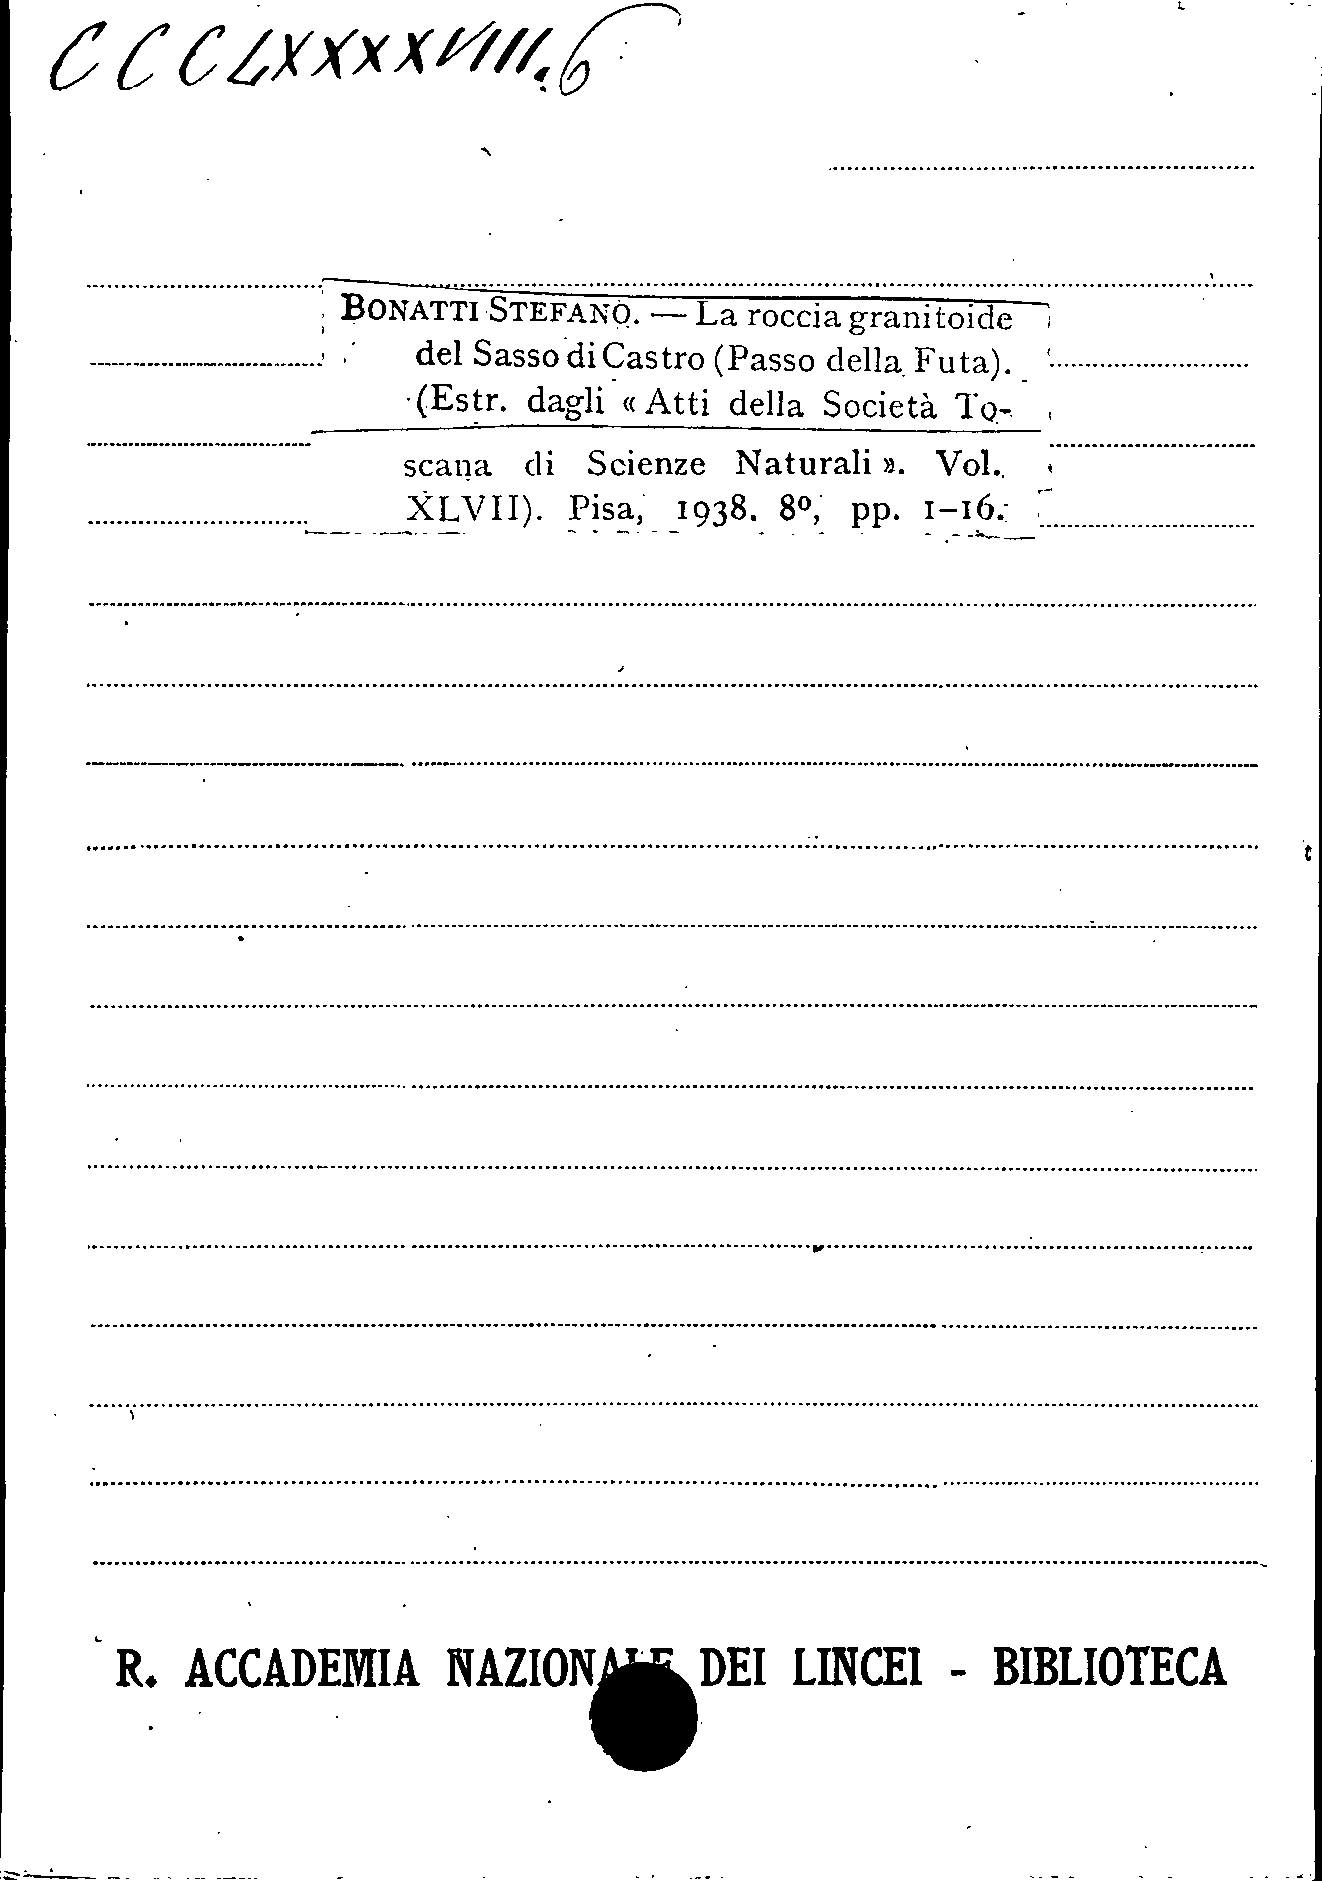 CCCLXXXXVIII.6
BONATTI STEFANO. — La roccia granitoide
del Sasso di Castro (Passo della Futa).
(Estr. dagli « Atti della Società To-
scana di Scienze Naturali ». Vol.
XLVII). Pisa, 1938. 8º, pp. 1–16.
R. ACCADEMIA NAZIONALE DEI LINCEI - BIBLIOTECA